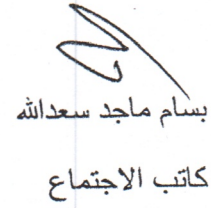 بسام ماجد سعدالله
كاتب الاجتماع